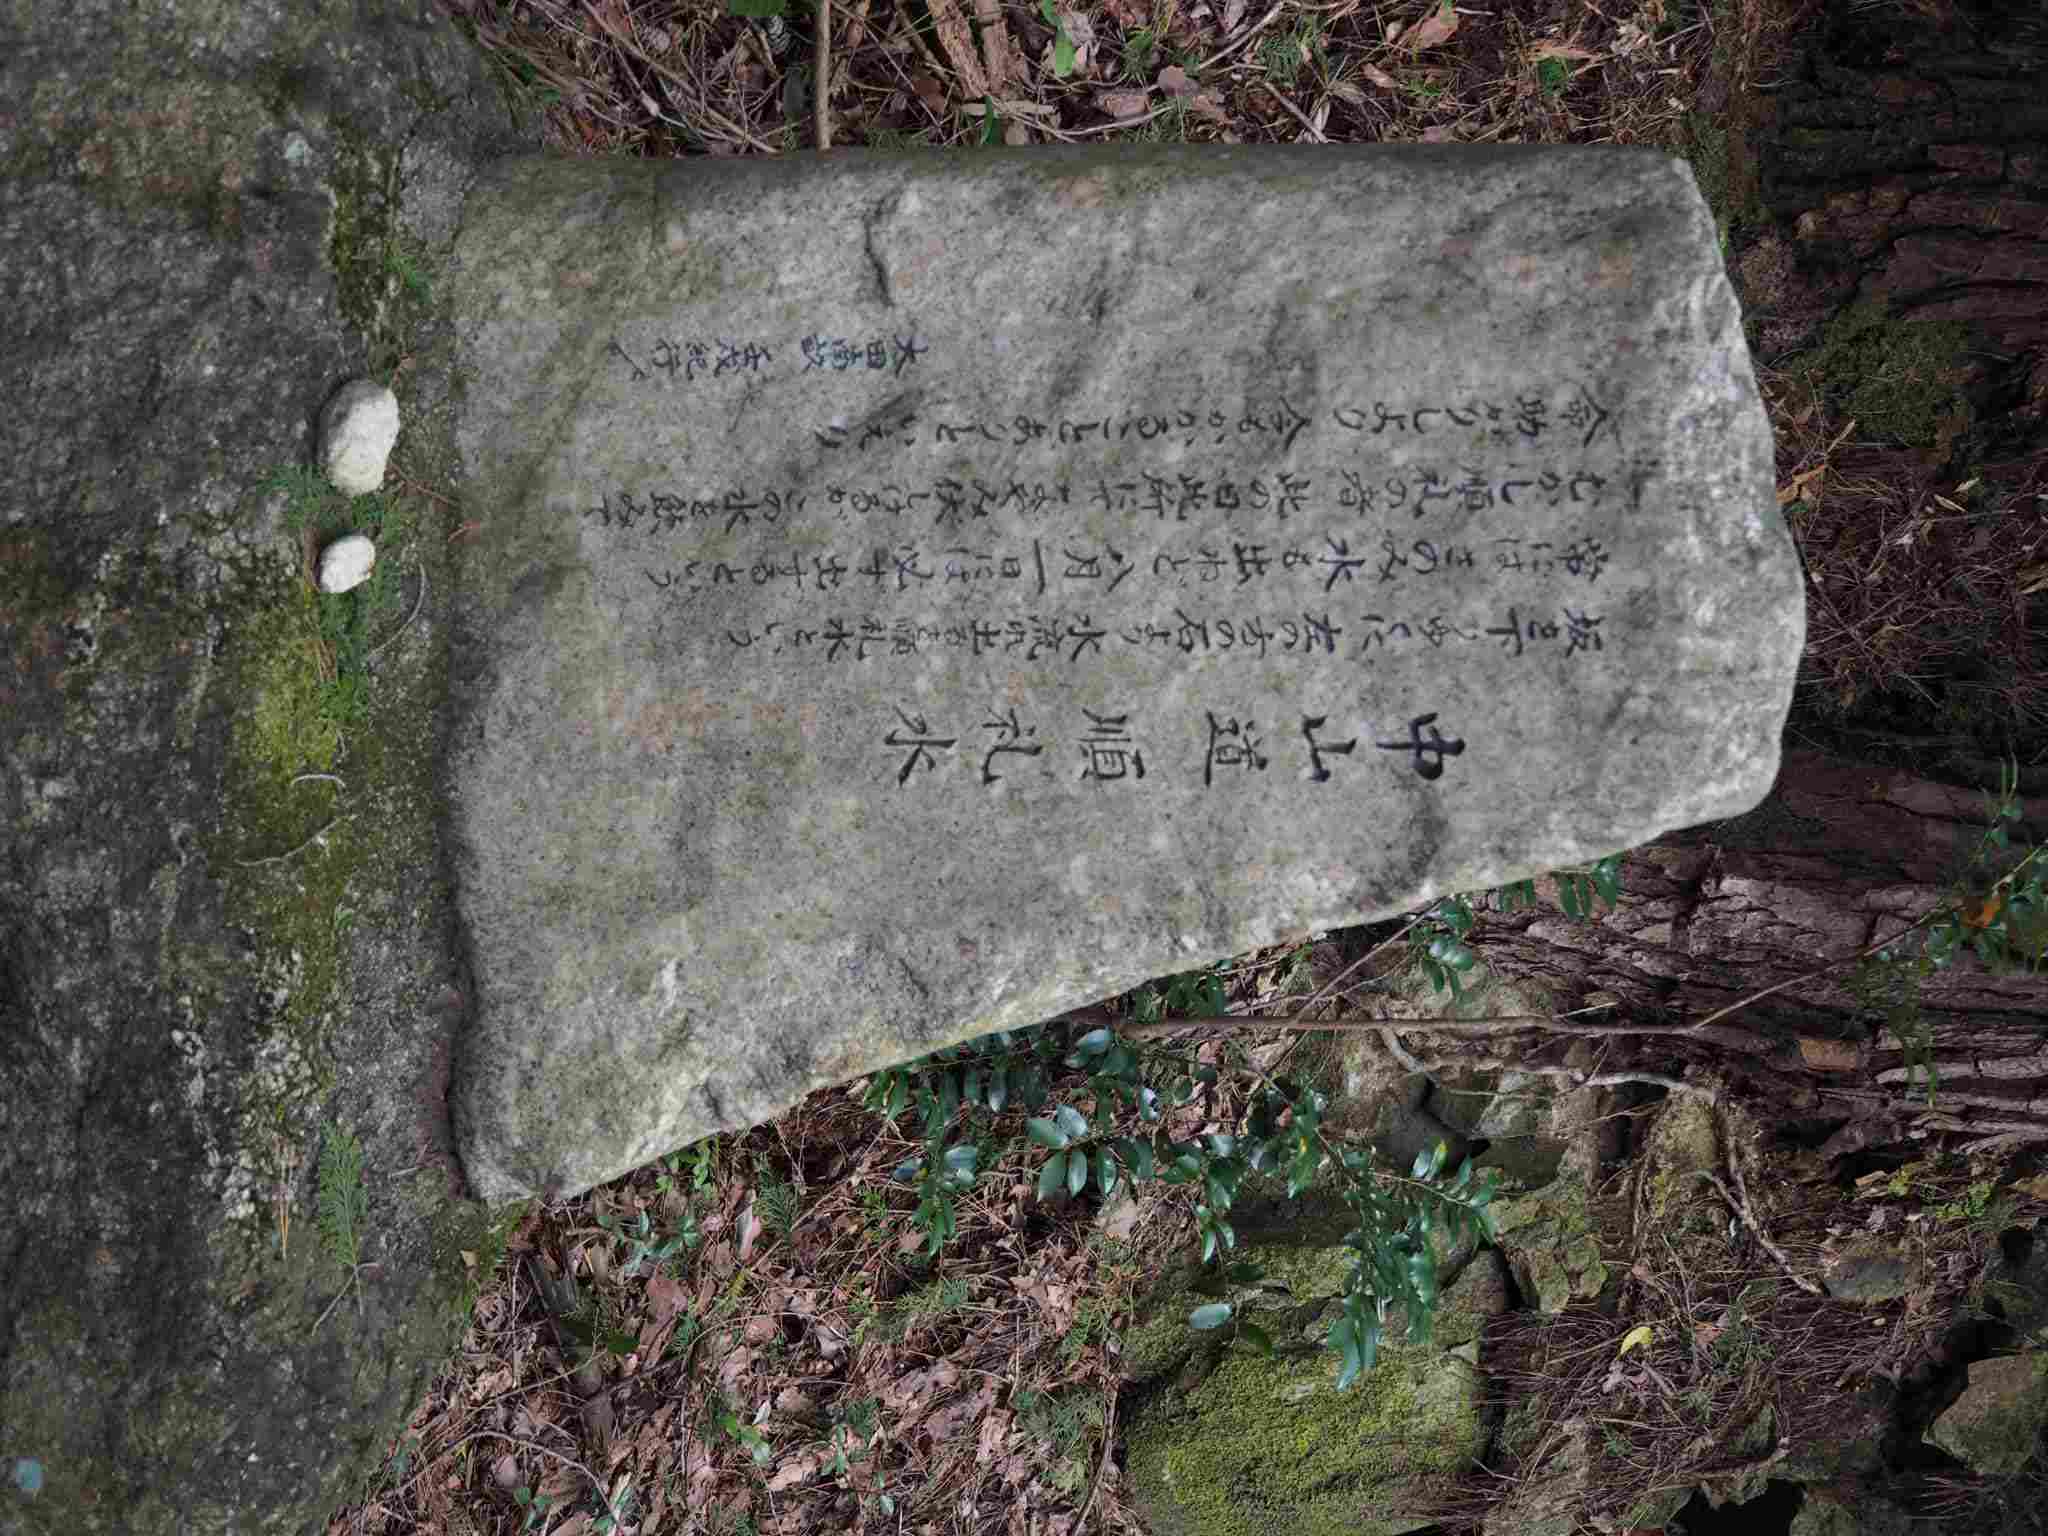 中山道順礼水
坂を下りゆくに左の方の石より水流れ出るを順礼水という
常にはさのみ水も出ねど八月一日には必す出するという
むかし順礼の者此の日此所にてなやみ伏しけるがこの水を飲みて
命助かりしより今もかゝることありといえり
大田南畝 壬戌紀行〆